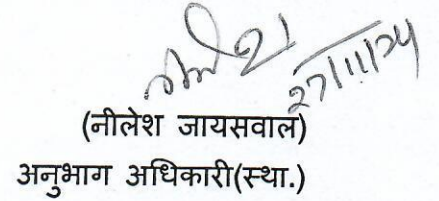 नीलेश 27/11/24
(नीलेश जायसवाल)
अनुभाग अधिकारी(स्था.)